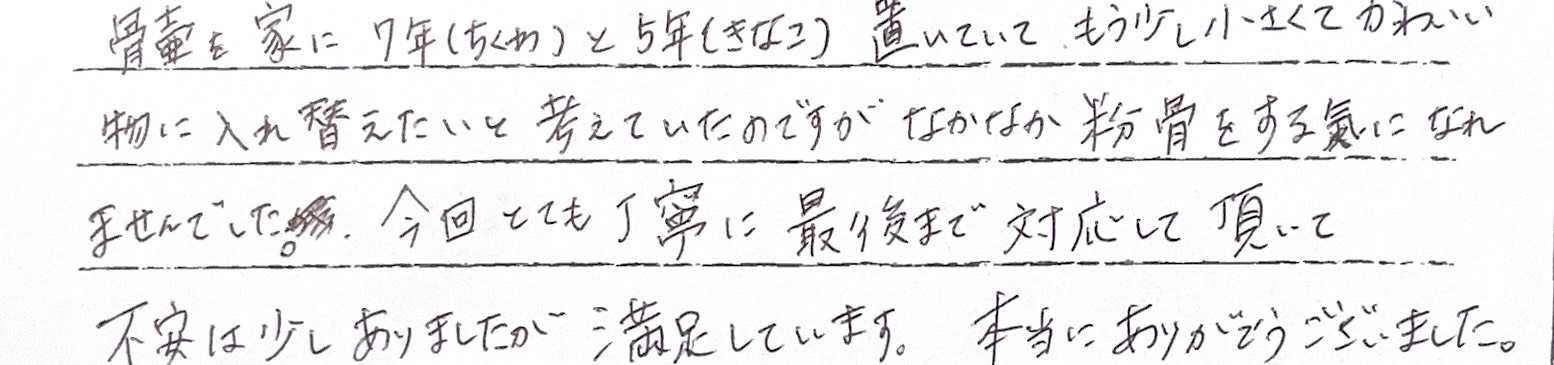 骨壷を家に7年(ちくわ)と5年(きなこ)置いていて、もう少し小さくてかわいい
物に入れ替えたいと考えていたのですがなかなか粉骨をする氣になれ
ませんでした。今回とても丁寧に最後まで対応して頂いて
不安は少しありましたが満足しています。本当にありがどうございました。